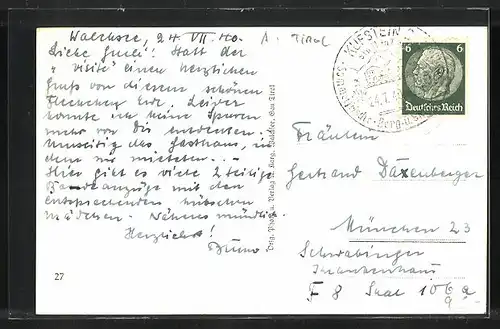 Walchsee, 24. VII. 40.
A. Tirol
Liebe Gusti! Statt der
"Visite" einen herzlichen
Gruß von diesem schönen
Fleckchen Erde. Leider
konnte ich keine Spuren
mehr von Dir entdecken.
das Gasthaus, in
dem wir mieteten...
Hier gibt es viele 2 teilige
Badeanzüge mit den
entsprechenden hübschen
Mädchen. Näheres mündlich.
Herzlichst!
Bruno
27
KUFSTEIN
24.7.40
6 6
Deutsches Reich
Fräulein
Gertraud Daxenberger
München 23
Schwabinger
Krankenhaus
F 8 Saal 106 a